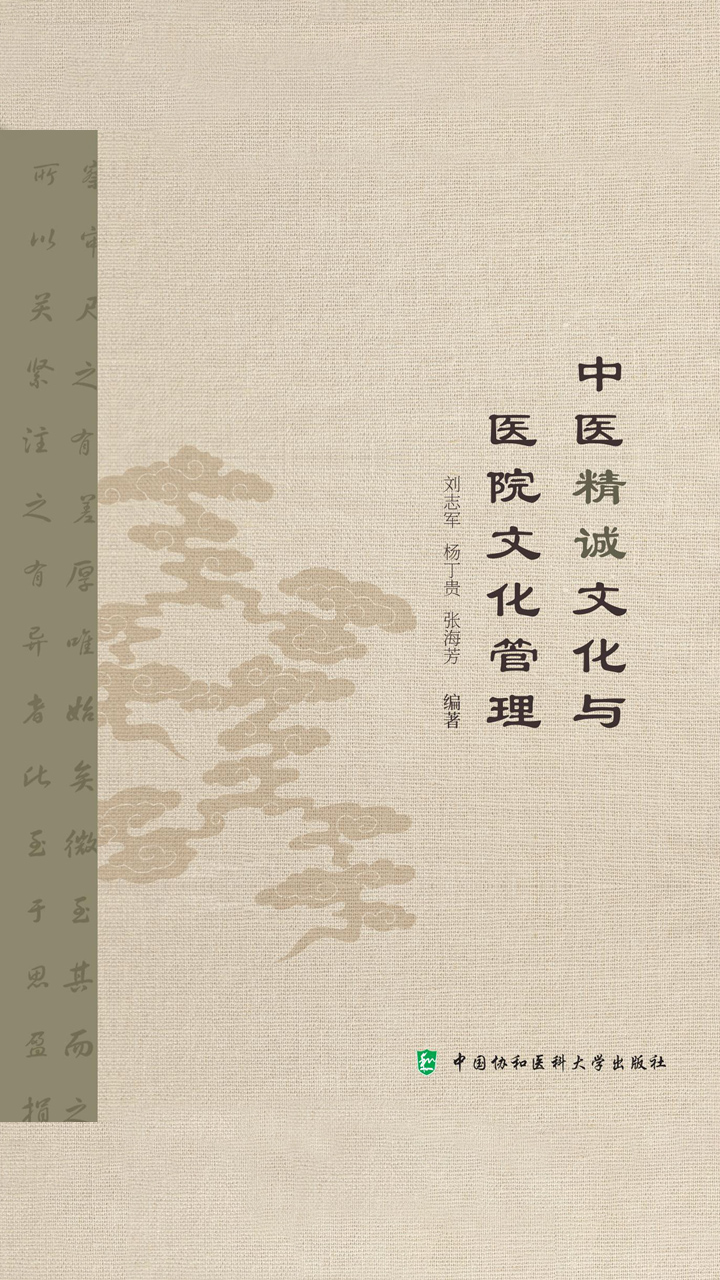 中医精诚文化与
医院文化管理
刘志军 杨丁贵 张海芳 编著
中国协和医科大学出版社
察审尺之有差厚唯始矣微至其而之
所以关紧注之有异者此至于思盈损